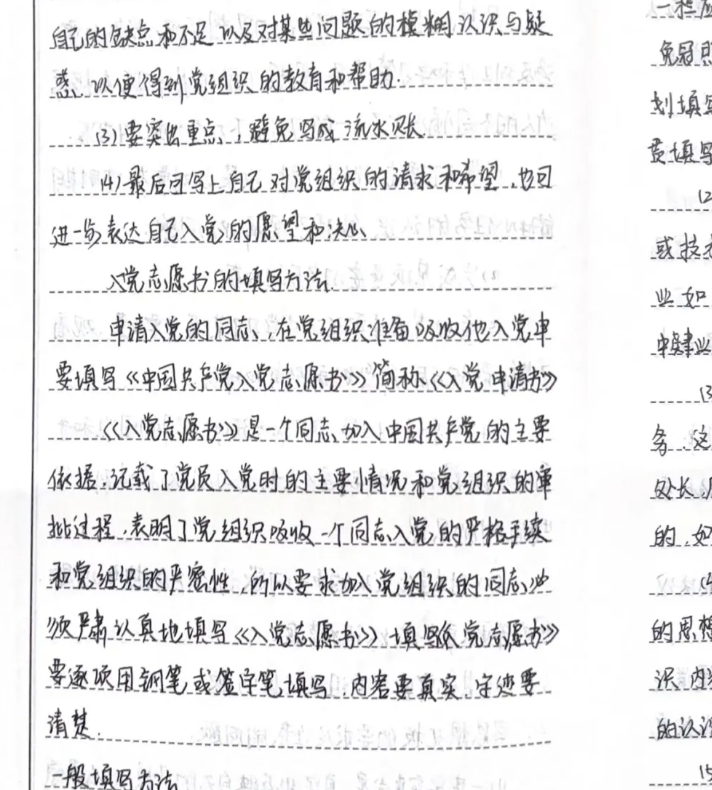 自己的缺点和不足以及对某些问题的模糊认识与疑
惑.以便得到党组织的教育和帮助.
(3)要突出重点,避免写成流水账.
(4)最后可写上自己对党组织的请求和希望.也可
进一步表达自己入党的愿望和决心.
入党志愿书的填写方法.
申请入党的同志,在党组织准备吸收他入党申
要填写《中国共产党入党志愿书》简称《入党申请书》
《入党志愿书》是一个同志加入中国共产党的主要
依据.记载了党员入党时的主要情况和党组织的审
批过程.表明了党组织吸收一个同志入党的严格手续
和党组织的严密性.所以要求加入党组织的同志必
须严肃认真地填写《入党志愿书》.填写《入党志愿书》
要逐项用钢笔或签字笔填写.内容要真实.字迹要
清楚.
一般填写方法
免冠照
划填写
填写
(2
或技
业如
中肄业
(3
务.这
处长
的.如
的思想
识.内
的认识
(5